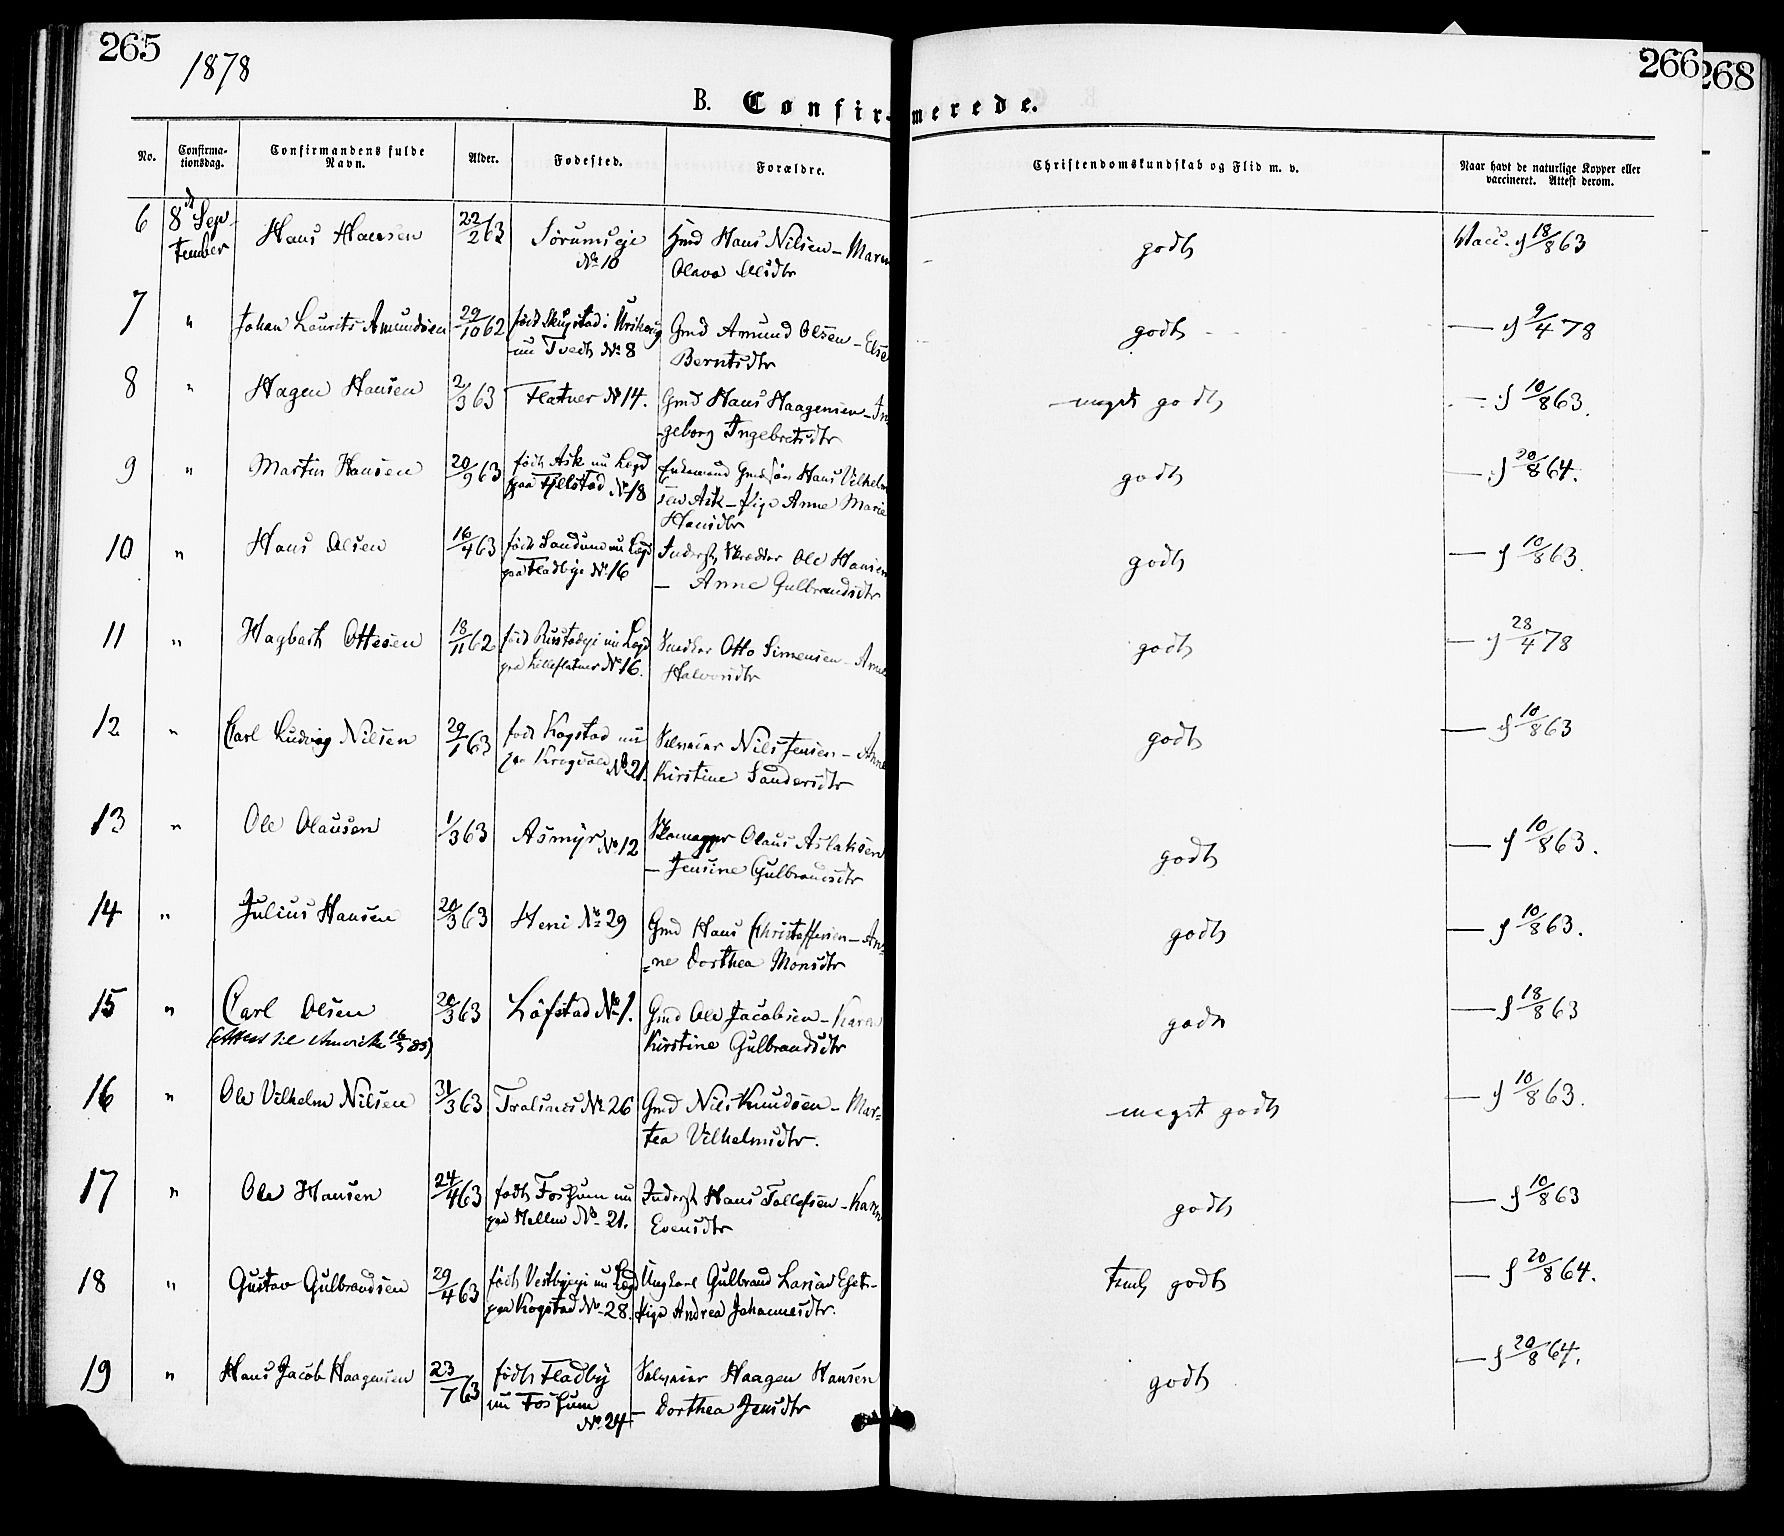 265
1878
266
268
B. Confirmerede.
No.
Confirma-
tionsdag.
Confirmandens fulde
Navn.
Alder.
Fødested.
Forældre.
Christendomskundskab og Flid m. v.
Naar havt de naturlige Kopper eller
vaccineret. Attest derom.
6 8 Sep-
tember
Hans Hansen 22/2 63 Sørumseje
No 10
Gmd Hans Nilsen – Maren
Olava
godt
Vacc. 18/8 63
7 " Johan Lauritz Amundsen 29/10 62 født i
nu Tvedt No 8
Gmd Amund Olsen – Else
Berntsdtr
godt
— 9/4 78
8 " Hagen Hansen 2/3 63 Flatner No 14.
Gmd Hans Haagensen – In-
geborg Ingebretsdtr
meget godt
— 10/8 63.
9 " Martin Hansen 20/9 63 født Ask nu Legd
paa No 18
Gmdsøn Hans Vilhelm-
sen Ask – Pige Anne Marie
Hansdtr
godt
— 20/8 64.
10 " Hans Olsen 16/4 63 født nu Legd
paa Fladbye No 16
Inderst, Ole Hansen
— Anne Gulbrandsdtr
godt
— 10/8 63.
11 " Hagbart Ottesen 18/11 62 født nu Legd
paa Lilleflatner No 16.
Snedker Otto Simensen – Anne
Halvorsdtr
godt
— 28/4 78
12 " Carl Ludvig Nilsen 29/1 63 født Kogstad nu
paa No 21.
Selveier Nils Jensen – Anne
Kirstine Sandersdtr
godt
— 10/8 63
13 " Ole Olausen 1/3 63 Asmyr No 12
Skomager Olaus Aslaksen
— Jensine Gulbrandsdtr
godt
— 10/8 63.
14 " Julius Hansen 20/3 63 Heni No 29
Gmd Hans Christoffersen – An-
=ne Dorthea Monsdtr
godt
— 10/8 63.
15 " Carl Olsen 20/3 63 Løfstad No 1.
(Attest til Amerika 83)
Gmd Ole Jacobsen – Karen
Kirstine Gulbrandsdtr
godt
— 18/8 63
16 " Ole Vilhelm Nilsen 31/3 63 Tralsnes No 26
Gmd Nils Knudsen – Mar-
tea Vilhelmsdtr.
meget godt
— 10/8 63.
17 " Ole Hansen 24/4 63 født Fossum nu
paa Hellen No 21.
Inderst Hans Tollefsen – Karen
Evensdtr
godt
— 10/8 63
18 " Gustav Gulbrandsen 29/4 63 født Vestbyeje nu Legd
paa Kogstad No 28.
Ungkarl Gulbrand Larsen
Pige Andrea Johannesdtr.
godt
— 20/8 64.
19 " Hans Jacob Haagensen 23/7 63 født Fladby
nu Fossum
No 24
Selveier Haagen Hansen
— Dorthea Jensdtr
godt
— 20/8 64.